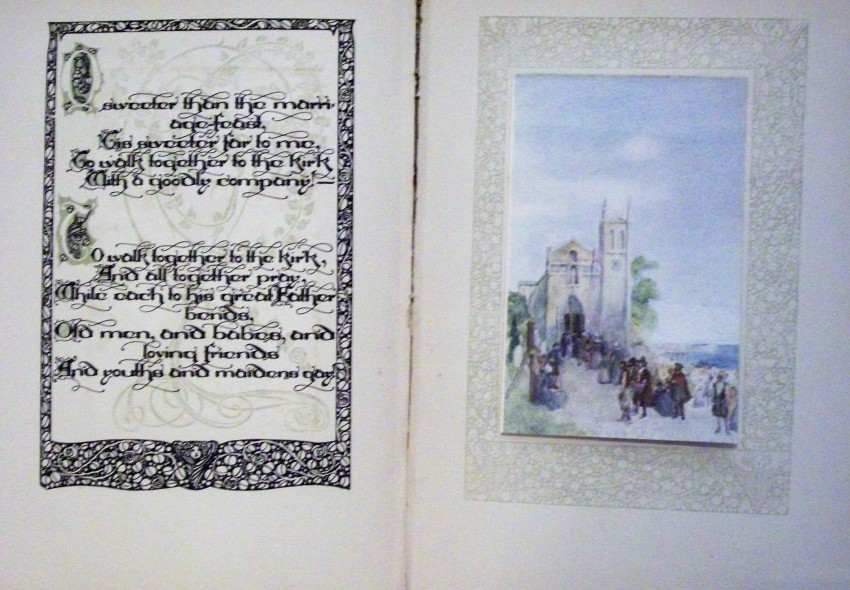 O sweeter than the marri-
age-feast,
'Tis sweeter far to me,
To walk together to the kirk
With a goodly company!—
To walk together to the kirk,
And all together pray,
While each to his great Father
bends,
Old men, and babes, and
loving friends
And youths and maidens gay!